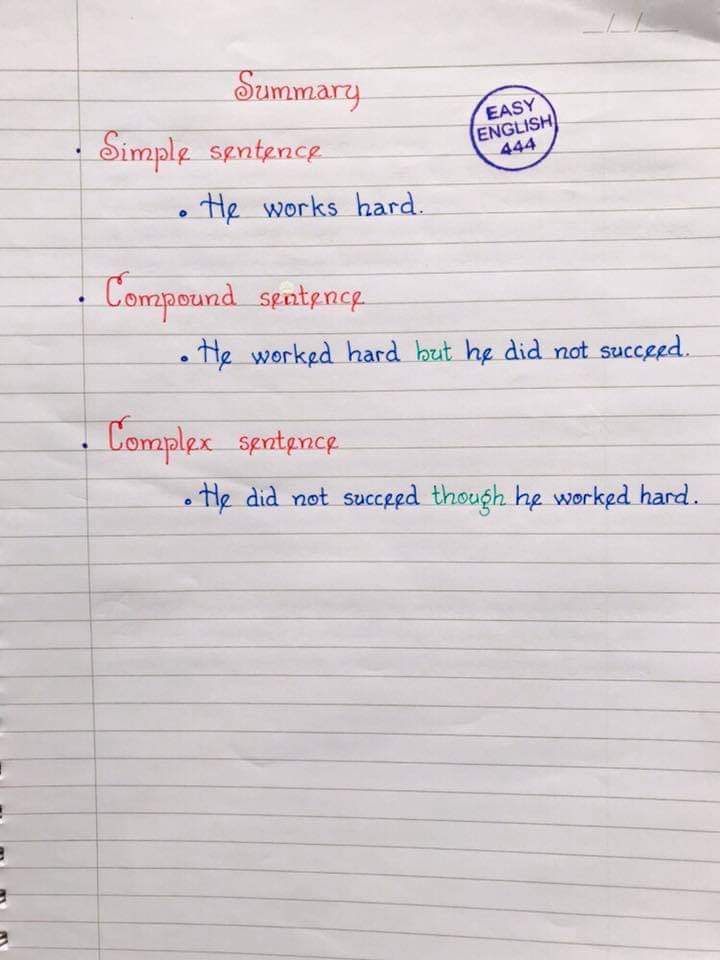 Summary
EASY
ENGLISH
444
• Simple sentence
• He works hard.
• Compound sentence
• He worked hard but he did not succeed.
• Complex sentence
• He did not succeed though he worked hard.